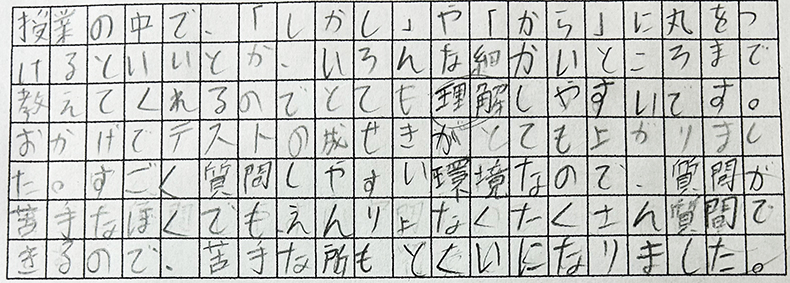 授業の中で、「しかし」や「から」に丸をつ
けるといいとか、いろんな細かいところまで
教えてくれるのでとても理解しやすいです。
おかげでテストの成せきがとても上がりまし
た。すごく質問しやすい環境なので、質問が
苦手なぼくでもえんりょなくたくさん質問で
きるので、苦手な所もとくいになりました。